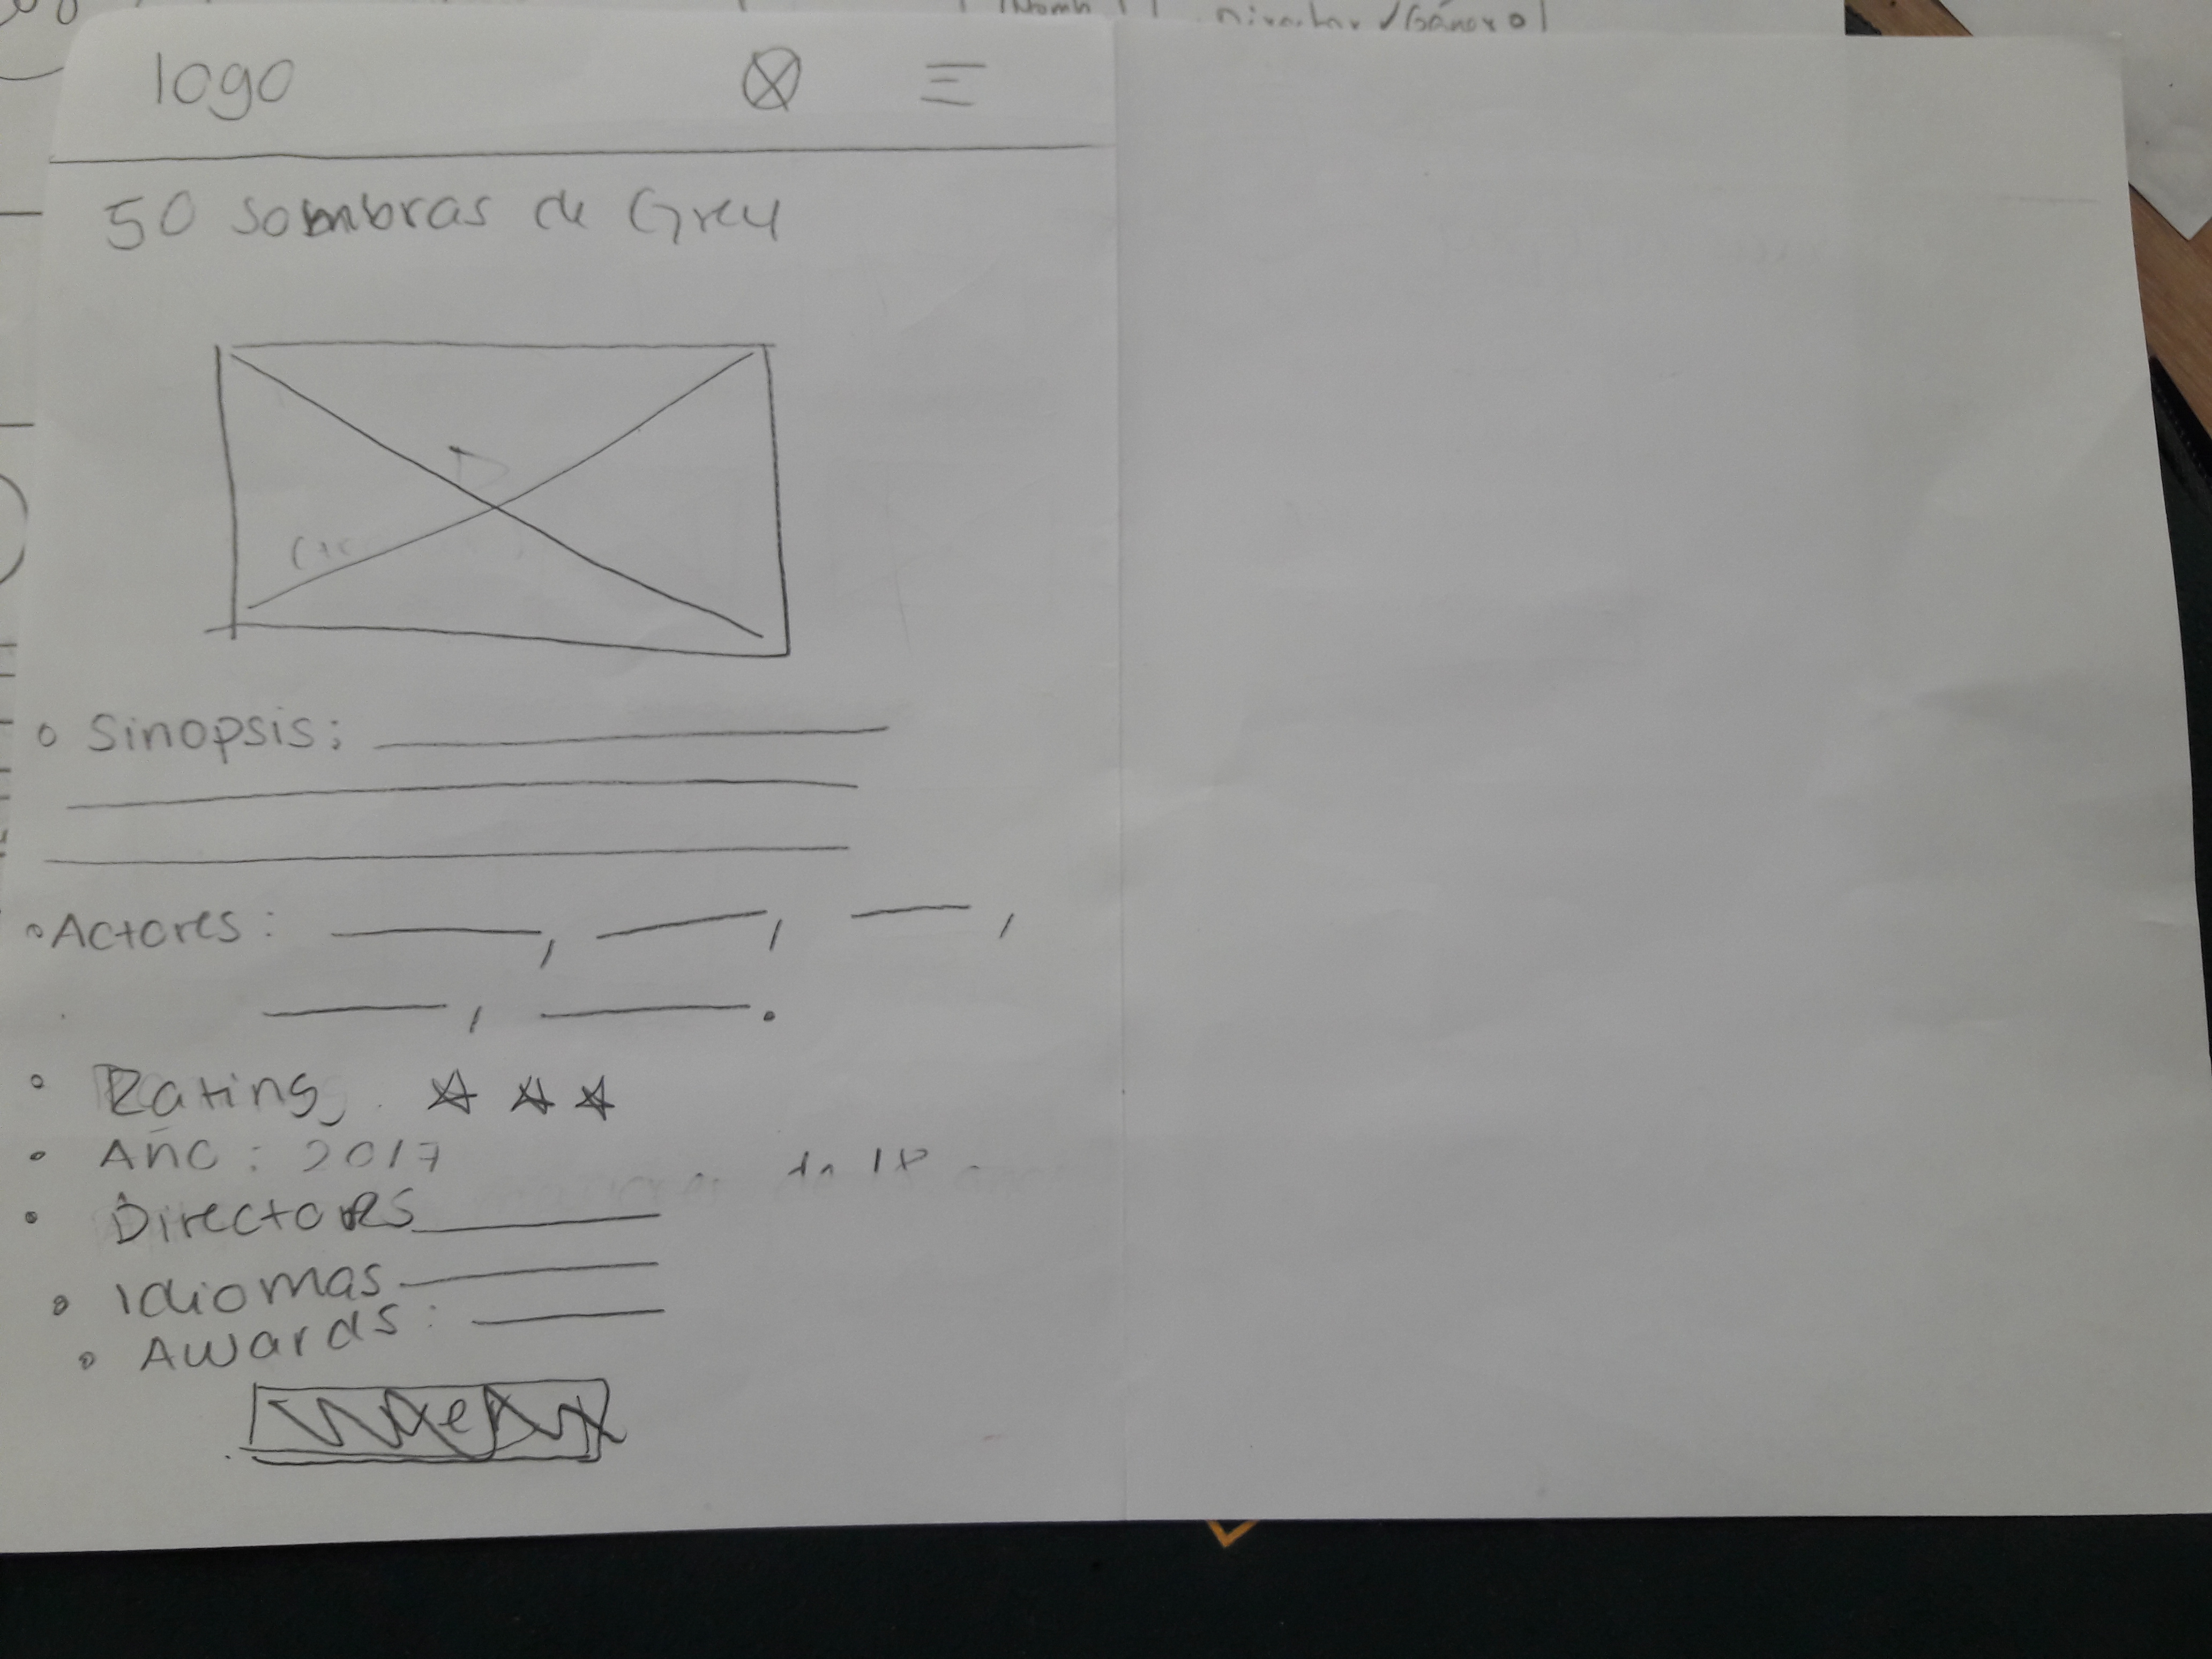 logo
50 sombras de Grey
Sinopsis:
Actores:
Rating
Año: 2017
Directores
Idiomas
Awards: